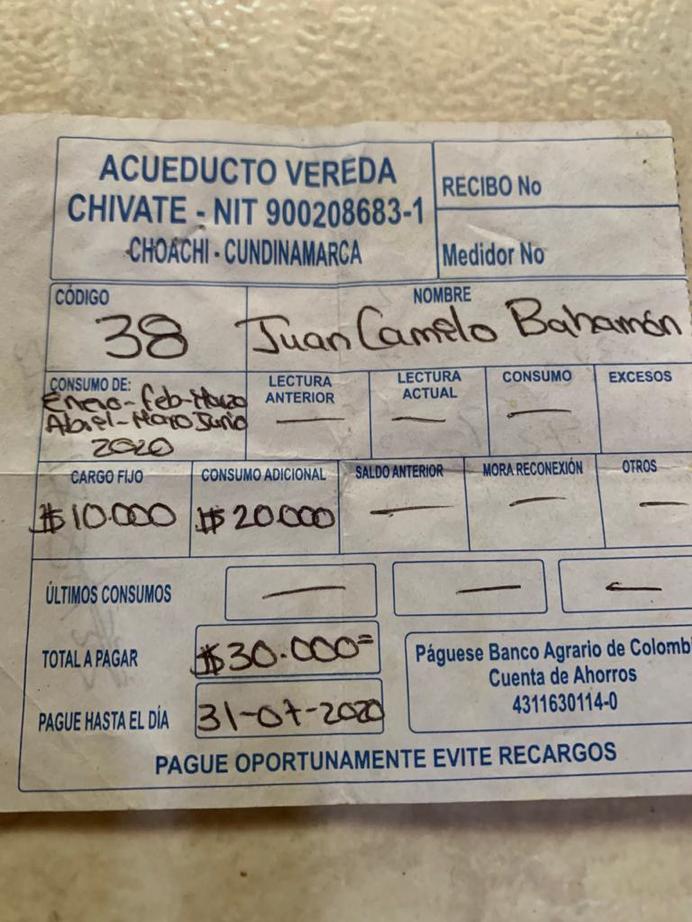 ACUEDUCTO VEREDA
CHIVATE - NIT 900208683-1
CHOACHI - CUNDINAMARCA
RECIBO No
Medidor No
CÓDIGO
38
NOMBRE
Juan Camelo Bahamón
CONSUMO DE:
Enero-feb-Marzo
Abril-Mayo Junio
2020
LECTURA
ANTERIOR
—
LECTURA
ACTUAL
—
CONSUMO
—
EXCESOS
CARGO FIJO
$10.000
CONSUMO ADICIONAL
$20.000
SALDO ANTERIOR
—
MORA RECONEXIÓN
—
OTROS
—
ÚLTIMOS CONSUMOS
— — —
TOTAL A PAGAR
$30.000=
PAGUE HASTA EL DÍA
31-07-2020
Páguese Banco Agrario de Colomb
Cuenta de Ahorros
4311630114-0
PAGUE OPORTUNAMENTE EVITE RECARGOS